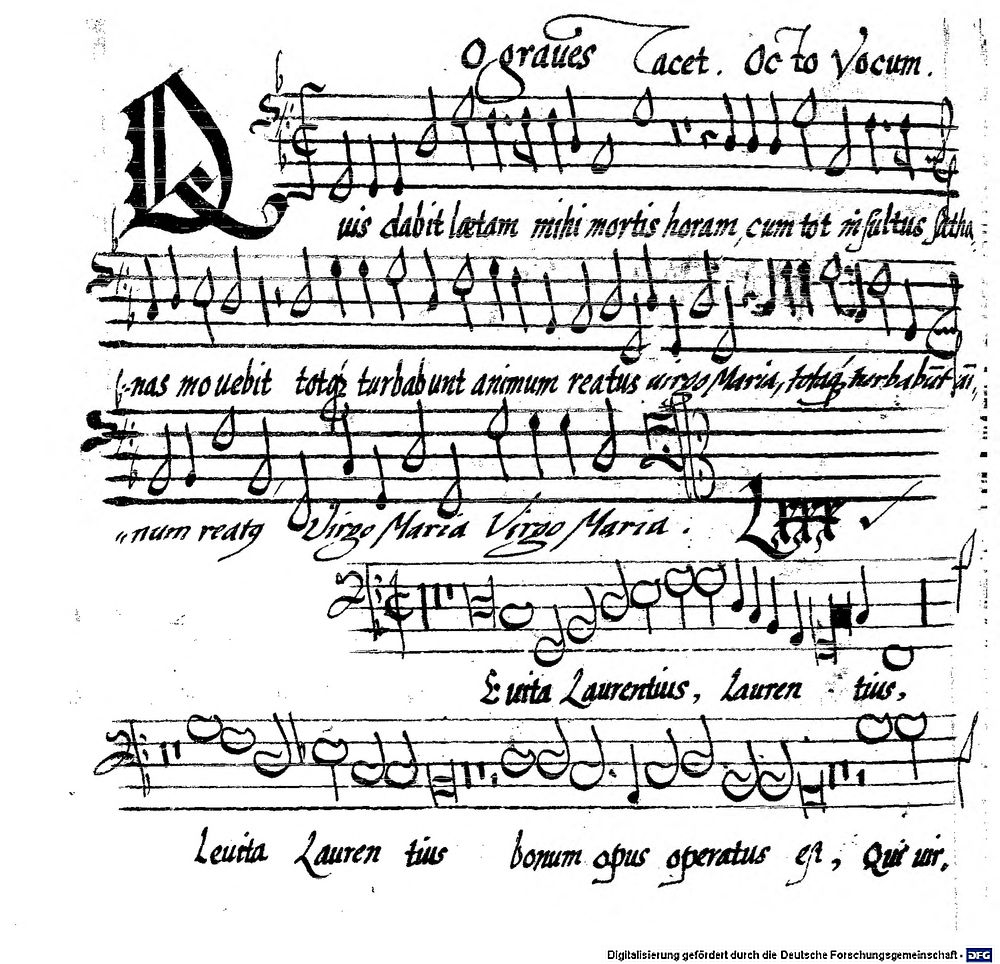 O graues Tacet. Octo Vocum.
Quis dabit lætam mihi mortis horam, cum tot insultus satha,
nas mouebit totq₃ turbabunt animum reatus uirgo Maria, totq₃ turbabūt ai,
num reatq Virgo Maria Virgo Maria.
Leuita Laurentius, Lauren tius,
Leuita Lauren tius bonum opus operatus est, Qui uir,
Digitalisierung gefördert durch die Deutsche Forschungsgemeinschaft - DFG